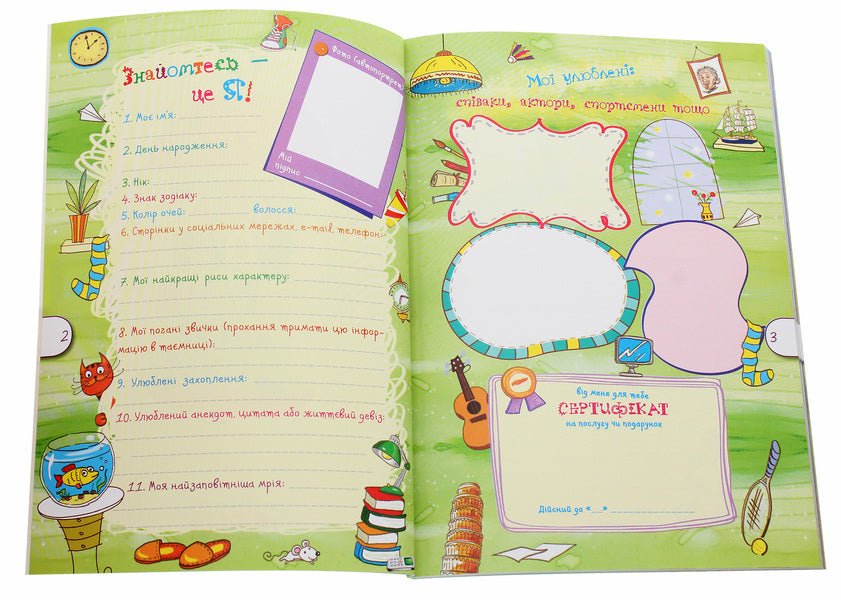 Знайомтесь –
це Я!
Фото (автопортрет)
Мій
підпис
1. Моє ім'я:
2. День народження:
3. Нік:
4. Знак зодіаку:
5. Колір очей: волосся:
6. Сторінки у соціальних мережах, e-mail, телефон:
7. Мої найкращі риси характеру:
8. Мої погані звички (прохання тримати цю інфор-
мацію в таємниці):
9. Улюблені захоплення:
10. Улюблений анекдот, цитата або життєвий девіз:
11. Моя найзаповітніша мрія:
2
Мої улюблені:
співаки, актори, спортсмени тощо
від мене для тебе
СЕРТИФІКАТ
на послугу чи подарунок
Дійсний до «__»
3